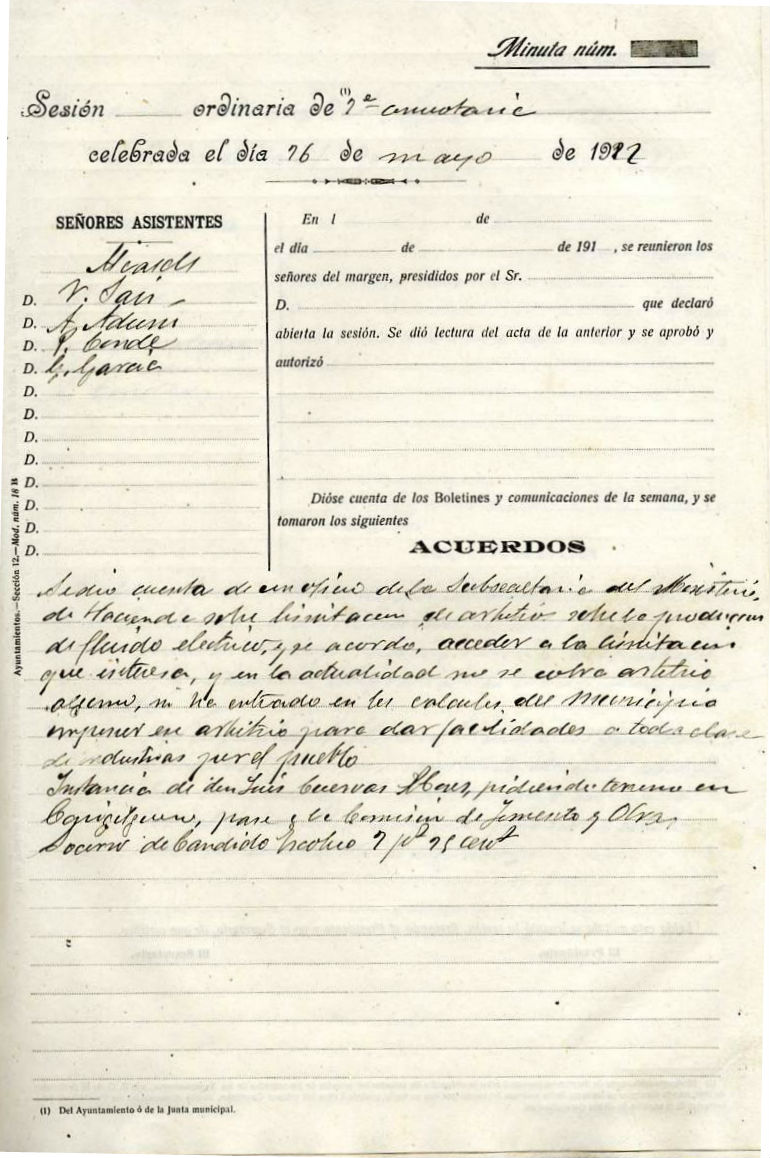 Minuta núm.
Sesión ordinaria de (1) 2ª convocatoria
celebrada el día 26 de mayo de 1922
SEÑORES ASISTENTES
Alcalde
D. V.
D. A.
D. P. Conde
D. G. Garcia
D.
D.
D.
D.
D.
D.
D.
D.
En l de
el día de de 191 , se reunieron los
señores del margen, presididos por el Sr.
D. que declaró
abierta la sesión. Se dió lectura del acta de la anterior y se aprobó y
autorizó
Dióse cuenta de los Boletines y comunicaciones de la semana, y se
tomaron los siguientes
ACUERDOS
Se dio cuenta de un oficio de la Subsecretaria del Ministerio
de Hacienda sobre limitacion de arbitrio sobre la produccion
de fluido electrico, y se acordo, acceder a la limitacion
que interesa, y en la actualidad no se cobra arbitrio
alguno, ni ha entrado en los calculos del Municipio
imponer ese arbitrio para dar facilidades a toda clase
de industrias por el pueblo
Instancia de don Luis Cuervas pidiendo terreno en
pase a la Comision de Fomento y Obras
Socorro de Candido 2 pts 25 cent
Ayuntamientos.—Sección 12.—Mod. núm. 18 B
(1) Del Ayuntamiento ó de la Junta municipal.